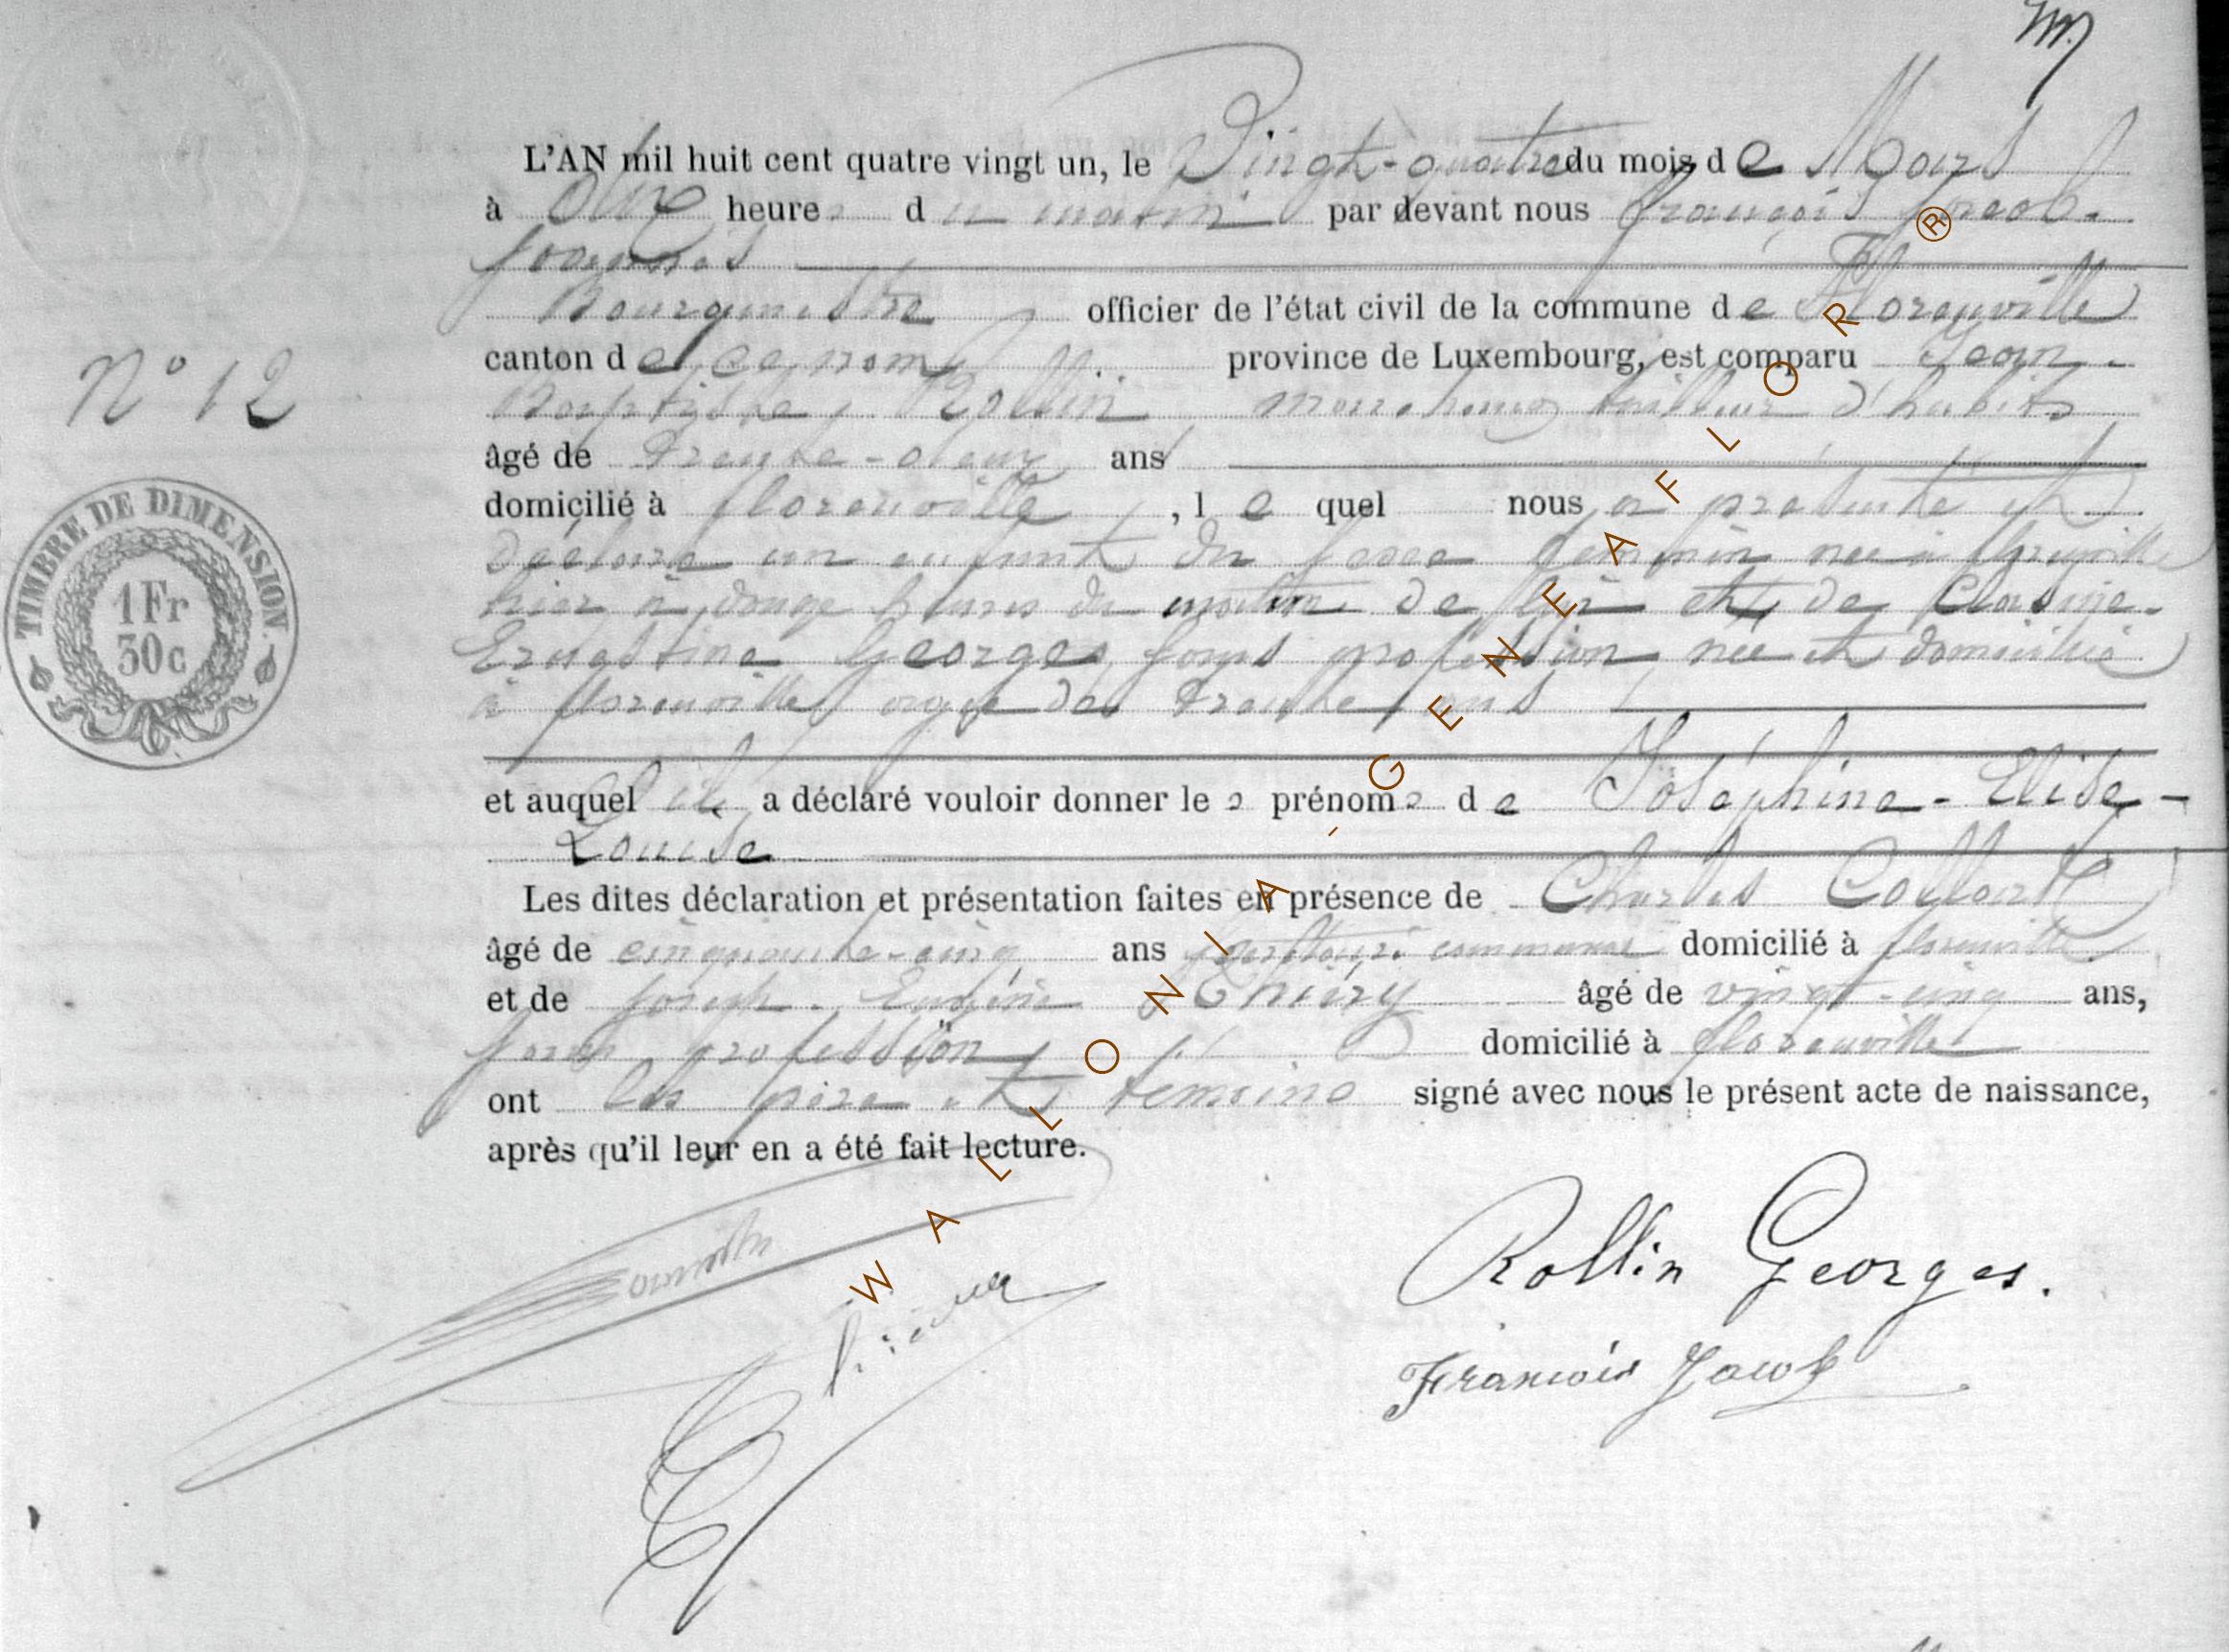 L'AN mil huit cent quatre vingt un, le Vingt-quatre du mois de Mars
à heures du matin par devant nous François Jacob
Bourgmestre officier de l'état civil de la commune de Florenville
canton de ce nom province de Luxembourg, est comparu Jean
Baptiste Rollin marchand tailleur d'habits
N° 12
âgé de trente-deux ans
domicilié à florenville, lequel nous a présenté et
déclaré un enfant du sexe féminin née à florenville
hier à heures du matin de lui et de
Ernestine Georges sans profession née et domiciliée
à florenville agée de trente ans
TIMBRE DE DIMENSION
1 Fr
30 c
et auquel il a déclaré vouloir donner les prénoms de Joséphine-Elise-
Louise
Les dites déclaration et présentation faites en présence de Charles Collart
âgé de cinquante-cinq ans domicilié à florenville
et de Joseph Thiéry âgé de vingt-cinq ans,
sans profession domicilié à florenville
ont les père et témoins signé avec nous le présent acte de naissance,
après qu'il leur en a été fait lecture.
Rollin Georges.
François Jacob
WALLONIA - GENEAFLOR ®